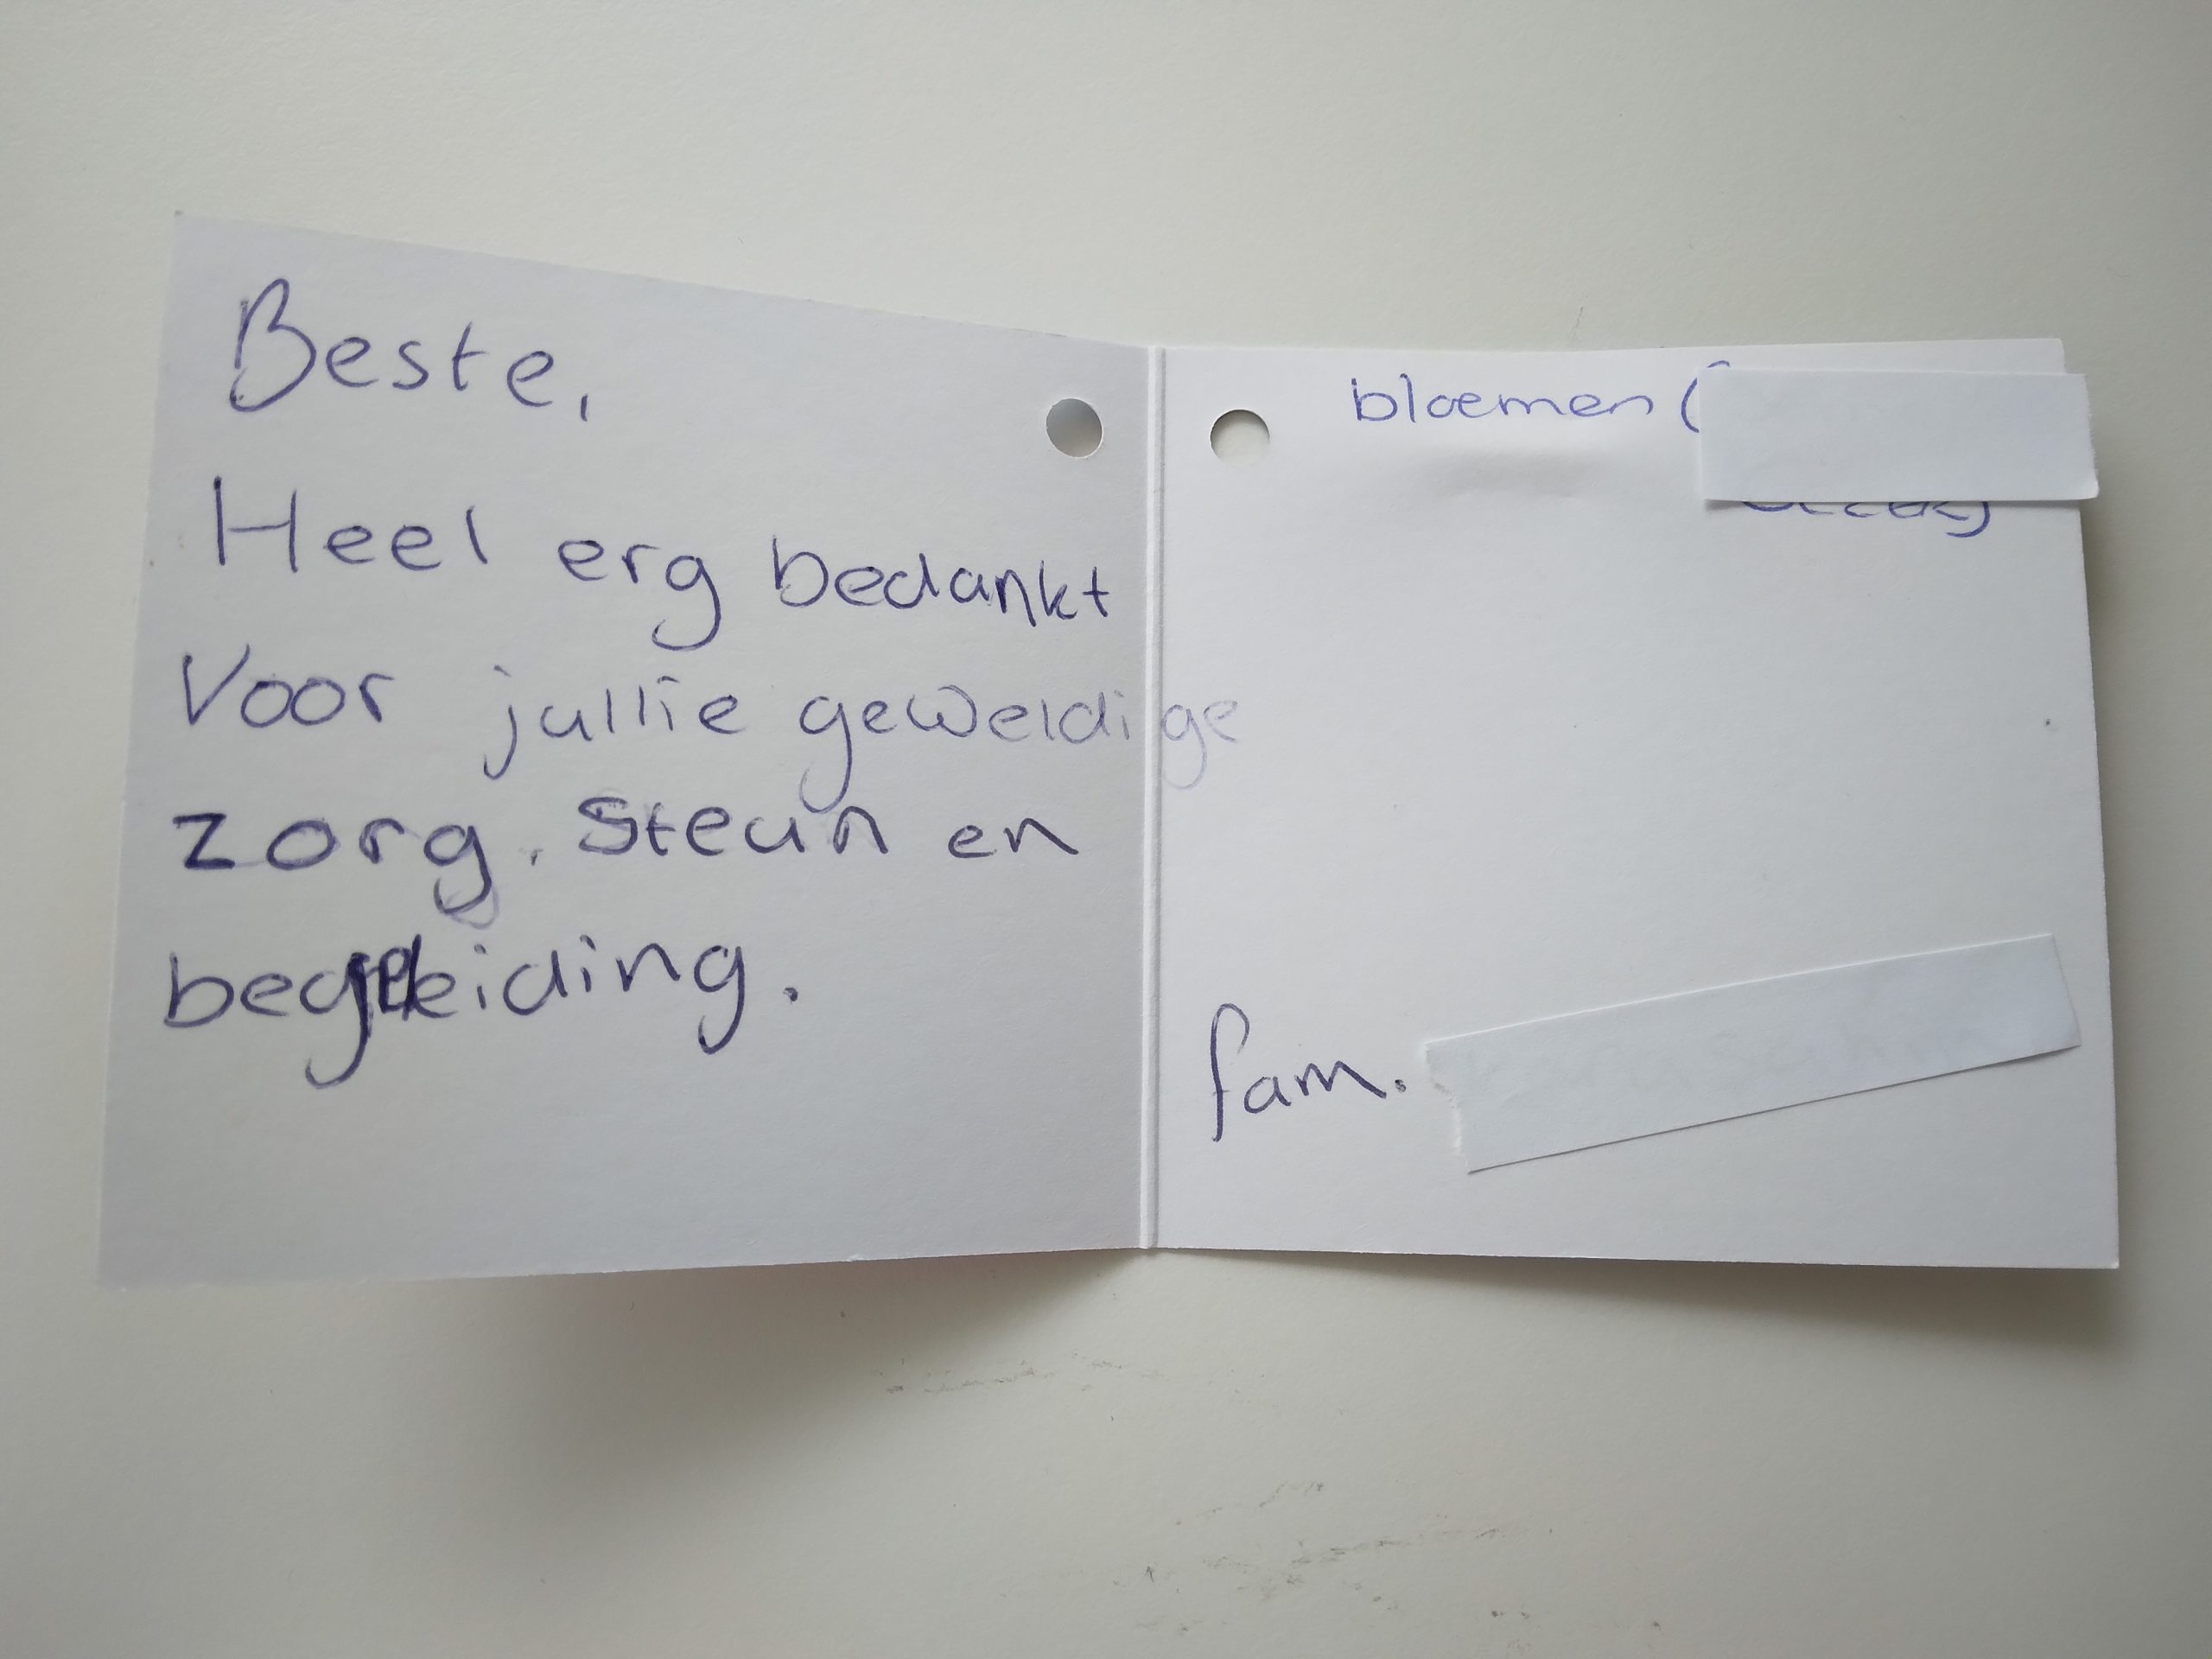 Beste,
Heel erg bedankt
Voor jullie geweldige
zorg. Steun en
begeleiding.
bloemen (
fam.